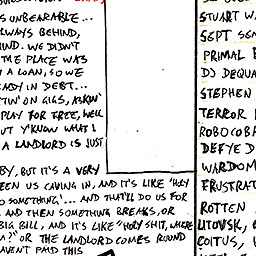 S UNBEARABLE...
LWAYS BEHIND,
IND. WE DIDN'T
THE PLACE WAS
A LOAN, SO WE
EADY IN DEBT...
TTIN' ON GIGS, ASKIN'
PLAY FOR FREE, WELL
UT Y'KNOW WHAT I
A LANDLORD IS JUST
BY, BUT IT'S A VERY
EEN US CAVING IN, AND IT'S LIKE "HOLY
O SOMETHING'... AND THAT'LL DO US FOR
AND THEN SOMETHING BREAKS, OR
BIG BILL, AND IT'S LIKE "HOLY SHIT, WHERE
M?" OR THE LANDLORD COMES ROUND
AVEN'T PAID THIS
STUART W
SEPT SEN
PRIMAL B
DJ DEQUA
STEPHEN
TERROR
ROBOCOBR
DEFYE D
WARDOM
FRUSTRAT
ROTTEN
LITOVSK,
COITUS,